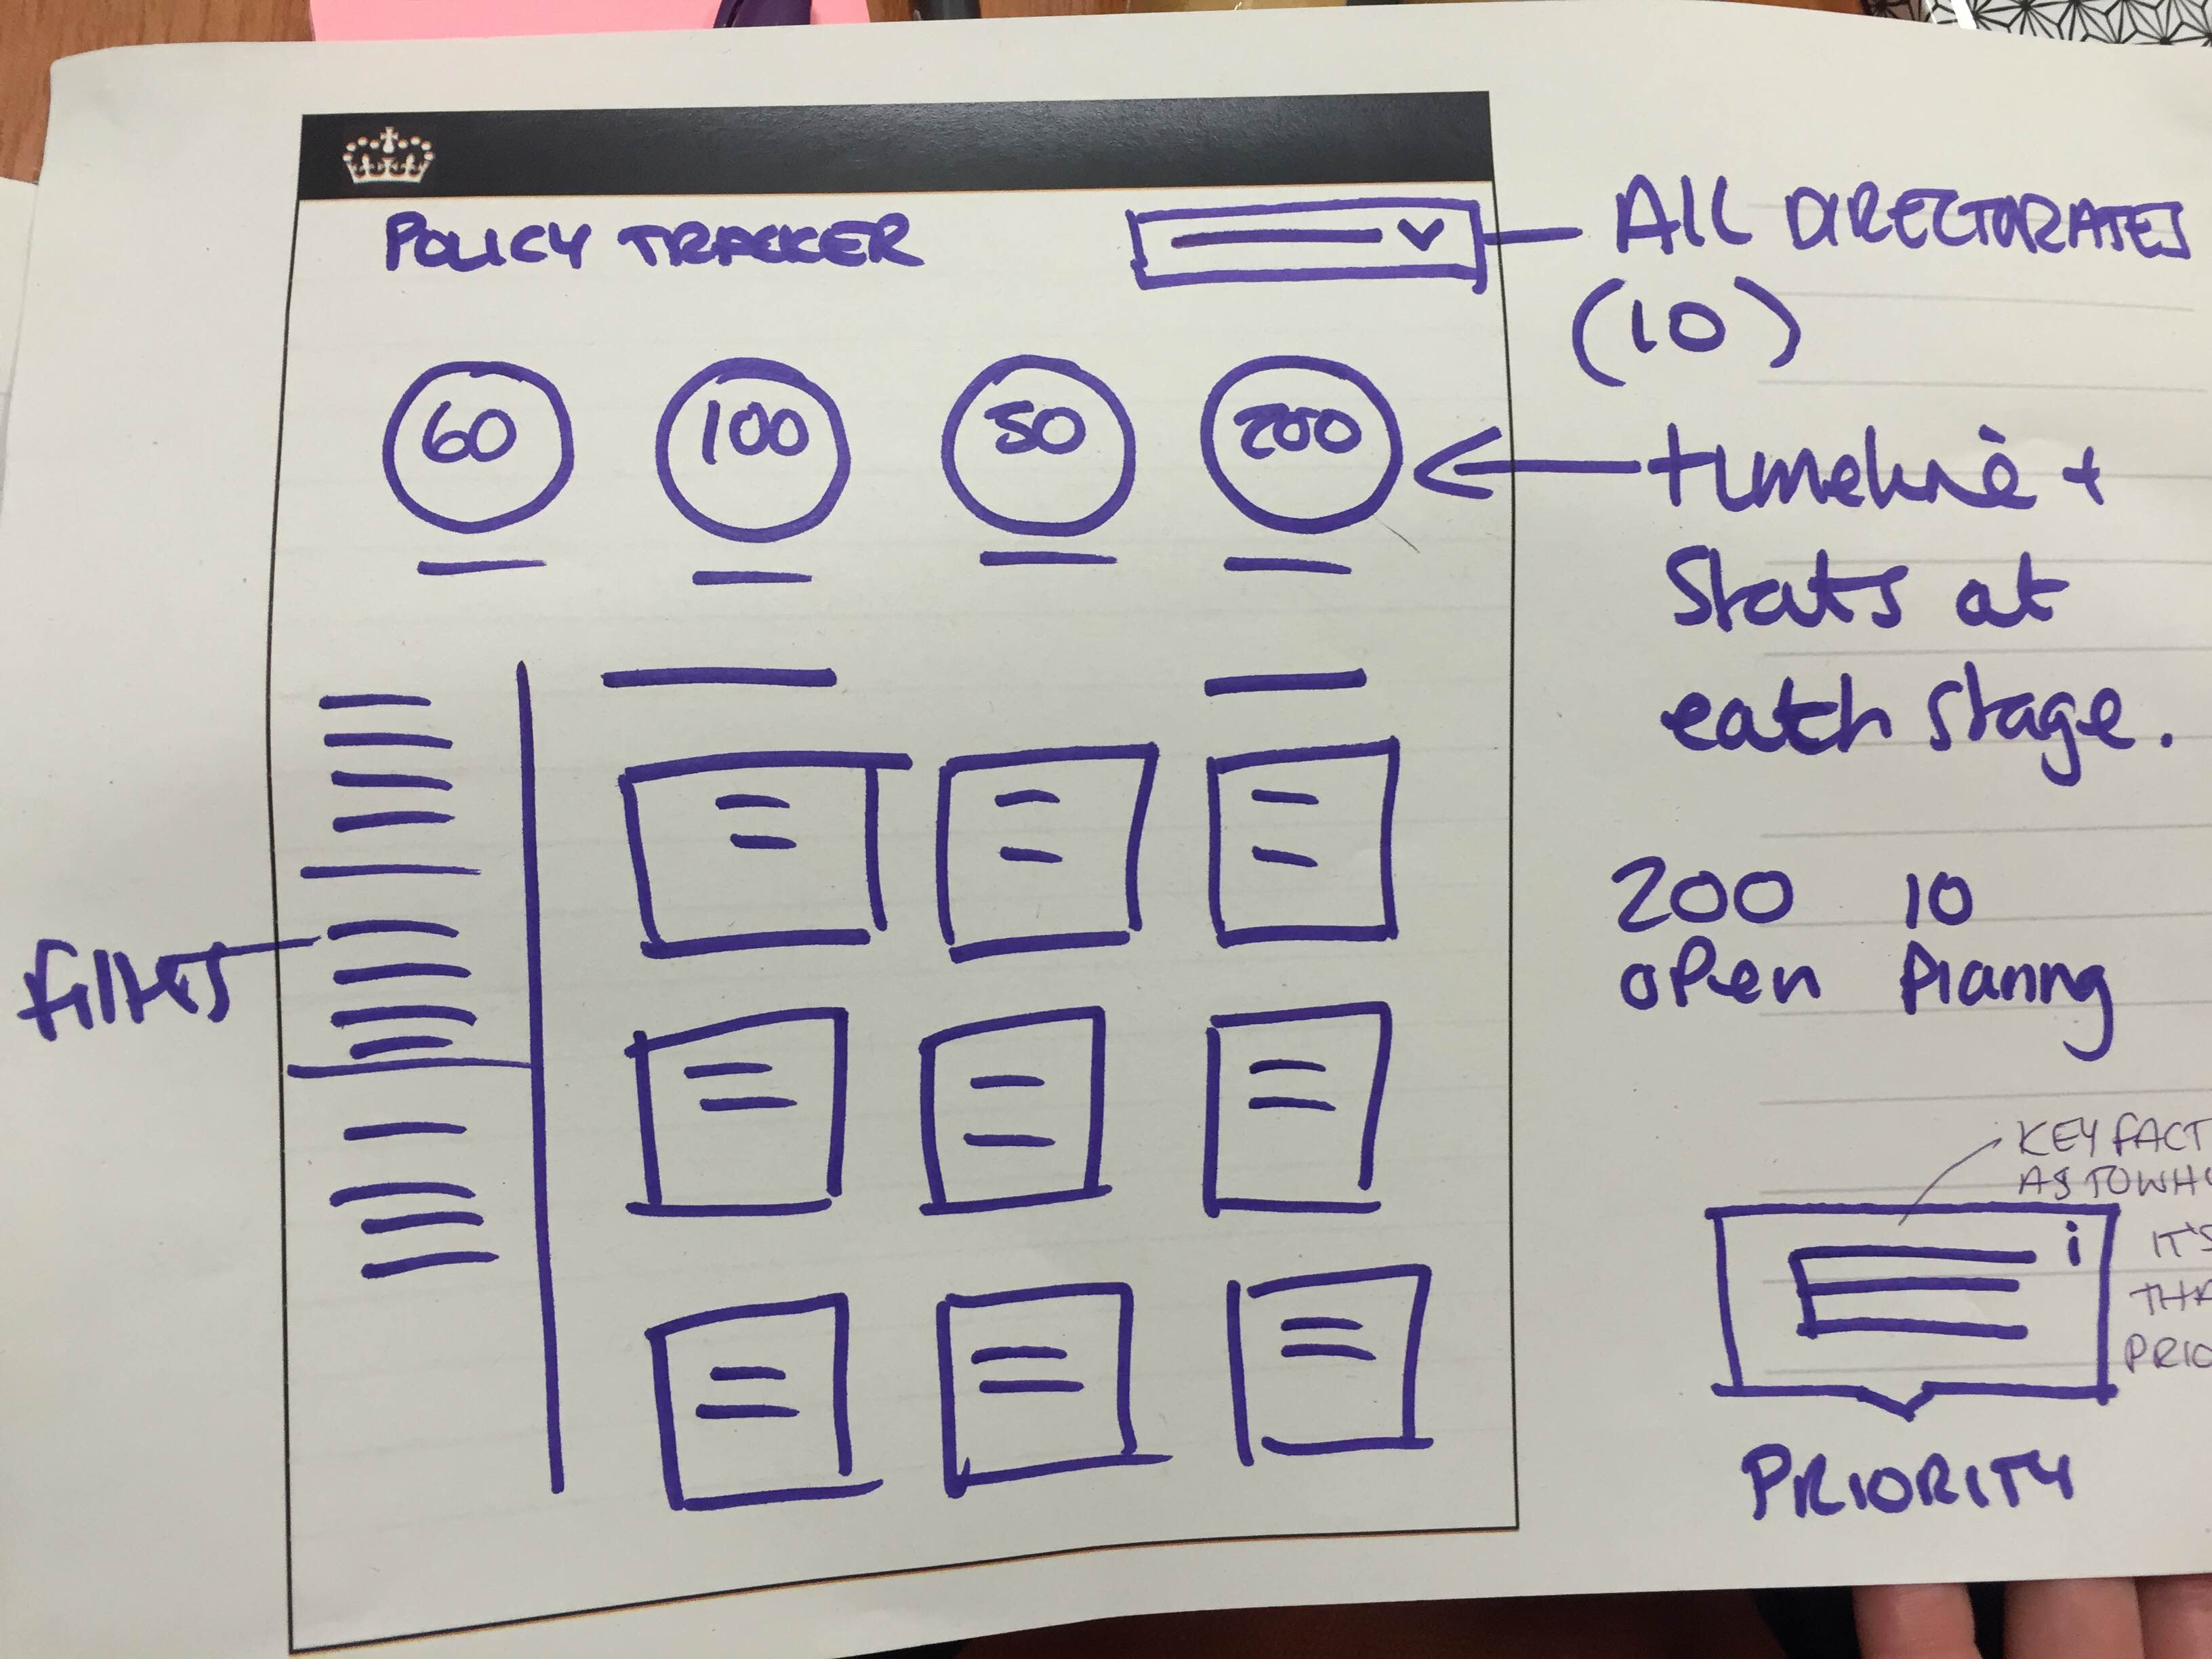 POLICY TRACKER
All DIRECTORATES
(10)
60 100 50 200
timeline +
Stats at
each stage.
filters
200 10
open Planng
KEY FACT
AS TO WHY
IT'S
i
PRIORITY